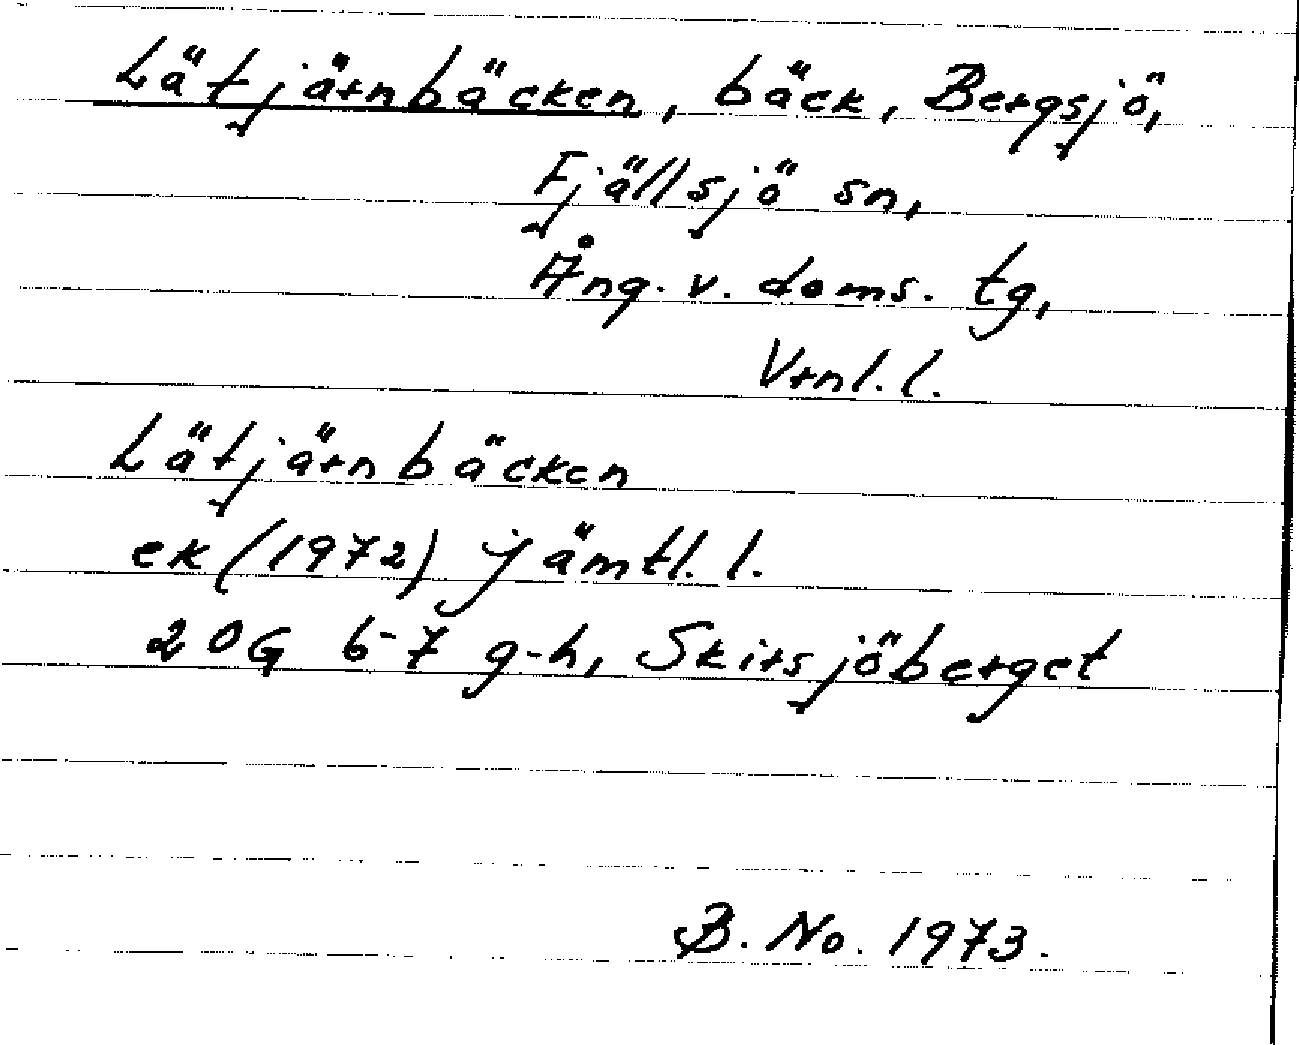 Lätjärnbäcken, bäck, Bergsjö,
Fjällsjö sn,
Ång. v. doms. tg,
Vrnl. l.
Lätjärnbäcken
ek (1972) Jämtl. l.
20G 6-7 g-h, Skirsjöberget
B. No. 1973.